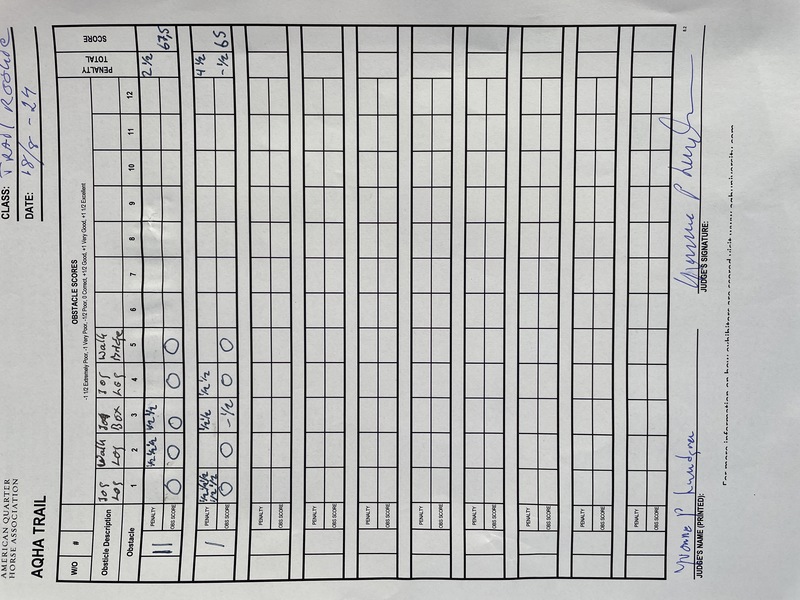 AMERICAN QUARTER
HORSE ASSOCIATION
AQHA TRAIL
CLASS: TRAIL ROOKIE
DATE: 18/8 - 24
OBSTACLE SCORES
-1 1/2 Extremely Poor, -1 Very Poor, -1/2 Poor, 0 Correct, +1/2 Good, +1 Very Good, +1 1/2 Excellent
W/O #
PENALTY TOTAL SCORE
Obsticle Description Jog Log Walk Log Jog Box Jog Log Walk Bridge
Obstacle 1 2 3 4 5 6 7 8 9 10 11 12
11 PENALTY ½ ½ ½ ½ ½ 2 ½
OBS SCORE 0 0 0 0 0 67,5
1 PENALTY ½ ½ ½ ½ ½ ½ ½ ½ ½ 4 ½
OBS SCORE 0 0 -½ 0 0 -½ 65
PENALTY
OBS SCORE
PENALTY
OBS SCORE
PENALTY
OBS SCORE
PENALTY
OBS SCORE
PENALTY
OBS SCORE
PENALTY
OBS SCORE
PENALTY
OBS SCORE
PENALTY
OBS SCORE
Yvonne P Lundgren
JUDGE'S NAME (PRINTED):
Yvonne P Lundgren
JUDGE'S SIGNATURE:
For more information on how exhibitors are scored visit www.aqhauniversity.com